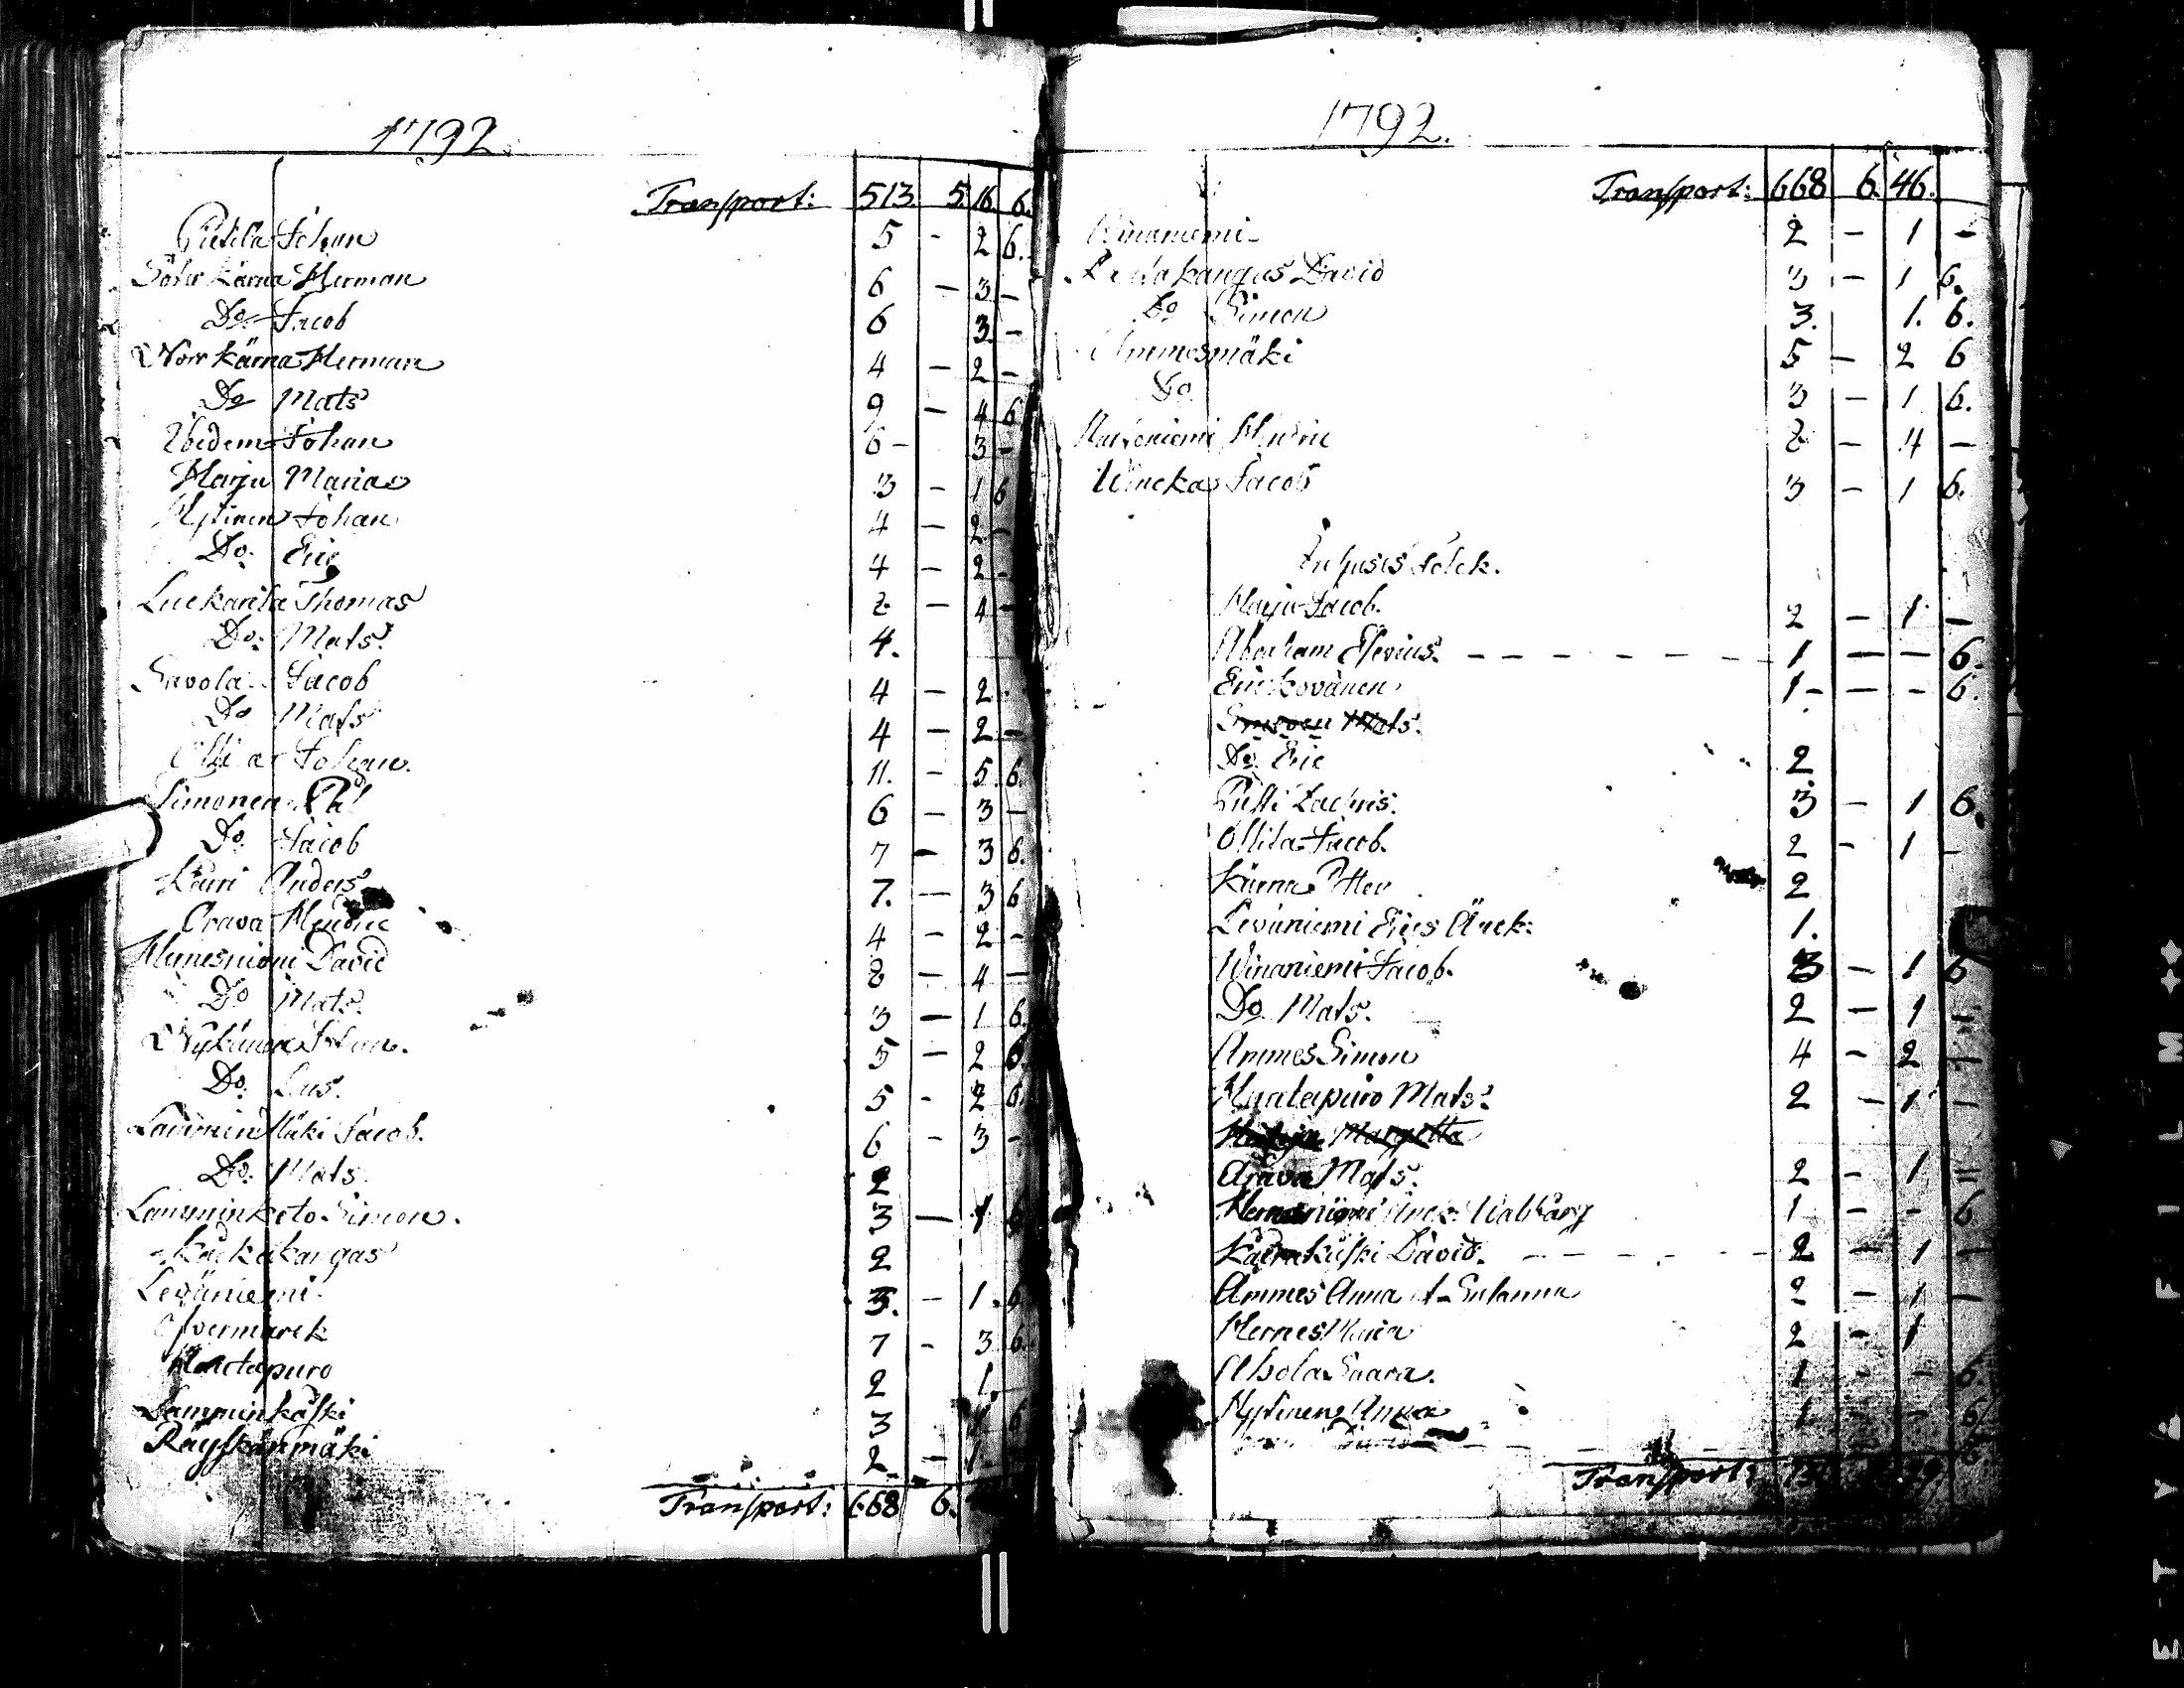 1792.
Transport: 513 5 16 6.
Pietila Johan 5 - 2 6.
Söder Kärna Herman 6 - 3 -
Do Jacob 6 3. -
Norr Kärna Herman 4 - 2 -
Do Mats 9 - 4 6
Ibidem Johan 6 - 3 -
Harju Maria 3 - 1 6
Hytinen Johan 4 - 2 -
Do. Eric 4 - 2 -
Luckarila Thomas 8 - 4 -
Do: Mats. 4.
Savola Jacob 4 - 2
Do Mats 4 - 2 -
Johan. 11. - 5 6.
Simonen Pål 6 - 3 -
Do. Jacob 7 - 3 6.
Kauri Anders 7. - 3 6
Orava Hendric 4 - 2 -
David 8 - 4 -
Do Mats. 3 - 1 6.
Nykänen Johan. 5 - 2 6.
Do. 5 - 2 6.
Lamminmäki Jacob. 6 - 3 -
Do. Mats. 2
Lamminketo Simon. 3 - 1 6
2
Leväniemi 3. - 1. 6
Ofvermarck 7 - 3 6.
Haatapuro 2 1.
Lamminkåski 3 6
Räyskänmäki 2 - 1
Transport: 668 6.
1792.
Transport: 668 6. 46.
2 - 1 -
David 3 - 1 6.
Do Simon 3. 1. 6.
Ammesmäki 5 - 2 6
Do 3 - 1 6.
8 - 4 -
Jacob 3 - 1 6.
Inhyses Folck.
Harju Jacob. 2 - 1 -
Abraham - - - - - - - 1 - - 6.
Eric Kovanen 1. - - - 6.
Mats.
Do. Eric 2
Putti Zachris. 3 - 1 6.
Ollila Jacob. 2 - 1 -
Kärna Petter 2
Levaniemi Erics Änck: 1.
Winaniemi Jacob. 3 - 1 6
Do. Mats. 2 - 1
Ammes Simon 4 - 2 -
Haatapuro Mats. 2 - 1 -
Margetta
Orava Mats. 2 - 1
Änck: Walbårg 1 - - 6
David. - - - - - 2 - 1 -
Ammes Anna et Susanna 2 - 1 -
Hernes Maria 2 - 1
Ahola Saara. 1 - - 6.
Hytinen Anna 1 - - 6
Transport:
E T Y Å F I L M ++